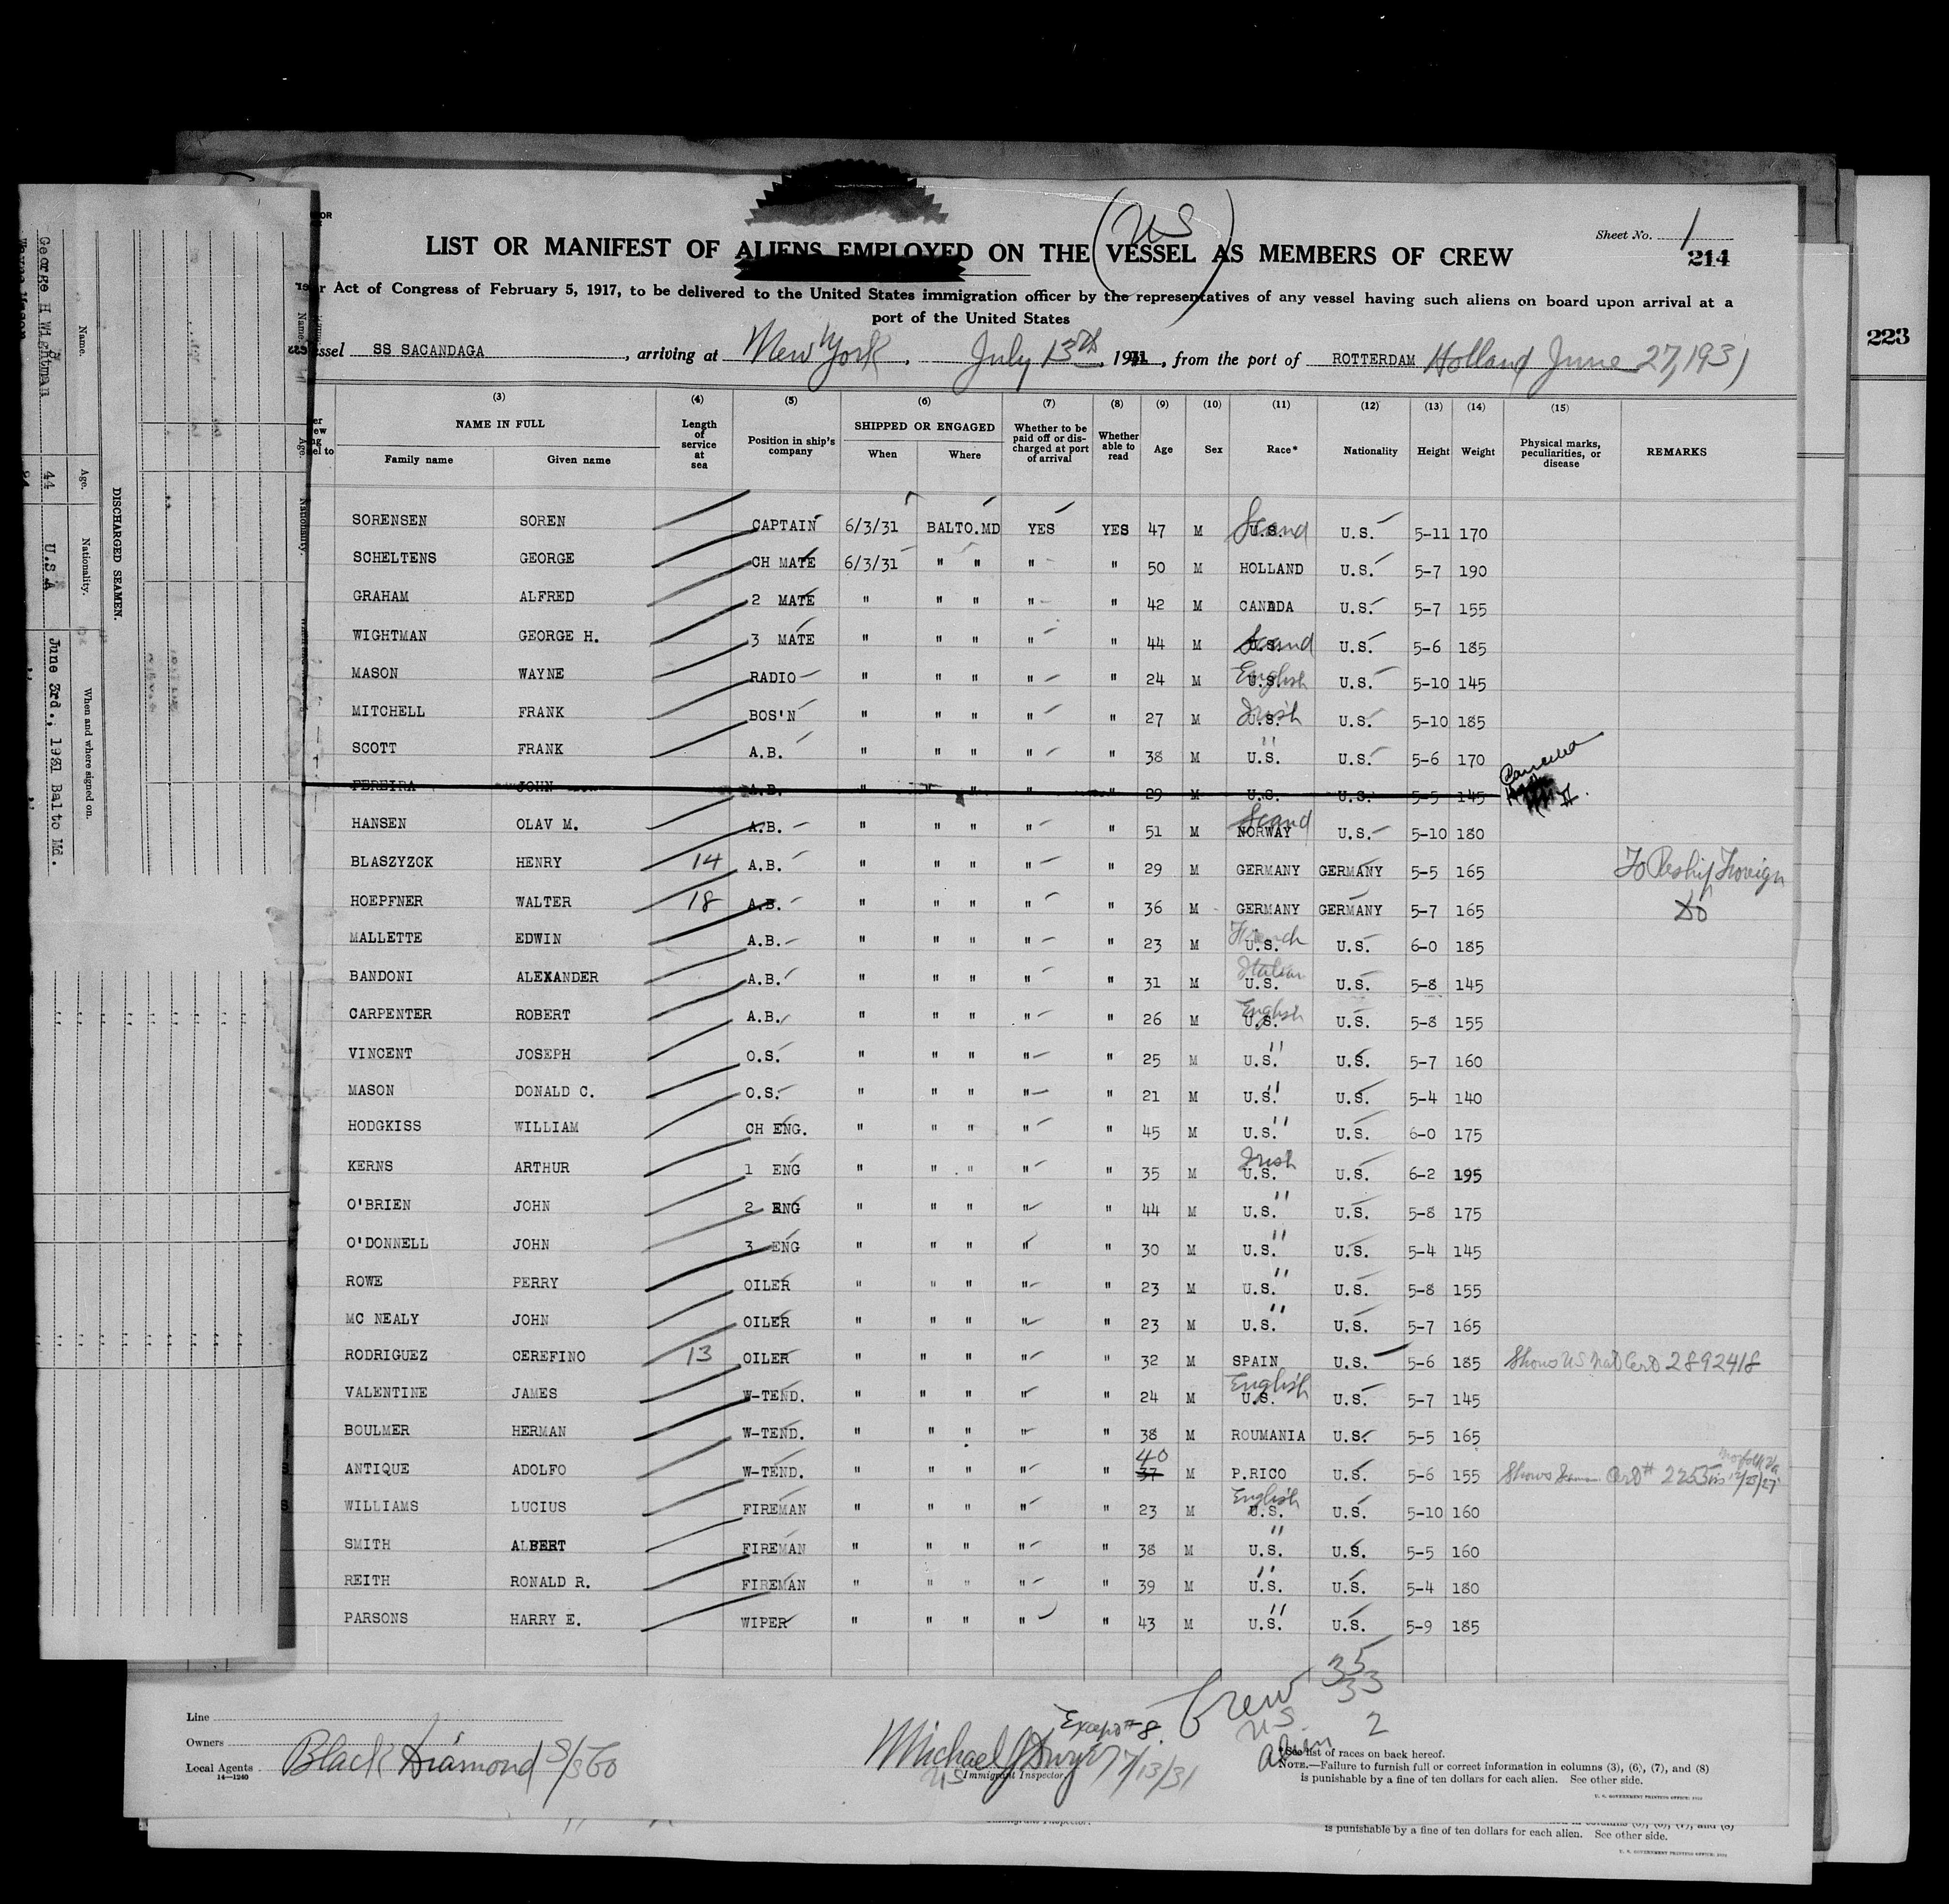 Sheet No. 1
214
223
(US)
LIST OR MANIFEST OF ALIENS EMPLOYED ON THE VESSEL AS MEMBERS OF CREW
Act of Congress of February 5, 1917, to be delivered to the United States immigration officer by the representatives of any vessel having such aliens on board upon arrival at a
port of the United States
essel SS SACANDAGA, arriving at New York, July 13th 1931, from the port of ROTTERDAM Holland June 27, 1931
(3) (4) (5) (6) (7) (8) (9) (10) (11) (12) (13) (14) (15)
NAME IN FULL Length of service at sea Position in ship's company SHIPPED OR ENGAGED Whether to be paid off or discharged at port of arrival Whether able to read Age Sex Race* Nationality Height Weight Physical marks, peculiarities, or disease REMARKS
Family name Given name When Where
SORENSEN SOREN CAPTAIN 6/3/31 BALTO.MD YES YES 47 M U.S. Scand U.S. 5-11 170
SCHELTENS GEORGE CH MATE 6/3/31 " " " " 50 M HOLLAND U.S. 5-7 190
GRAHAM ALFRED 2 MATE " " " " " 42 M CANADA U.S. 5-7 155
WIGHTMAN GEORGE H. 3 MATE " " " " " 44 M U.S. Scand U.S. 5-6 185
MASON WAYNE RADIO " " " " " 24 M U.S. English U.S. 5-10 145
MITCHELL FRANK BOS'N " " " " " 27 M U.S. Irish U.S. 5-10 185
SCOTT FRANK A.B. " " " " " 38 M U.S. " U.S. 5-6 170
PEREIRA JOHN A.B. " " " " " 29 M U.S. U.S. 5-5 145
HANSEN OLAV M. A.B. " " " " " 51 M NORWAY Scand U.S. 5-10 180
BLASZYZCK HENRY 14 A.B. " " " " " 29 M GERMANY GERMANY 5-5 165 To Reship Foreign
HOEPFNER WALTER 18 A.B. " " " " " 36 M GERMANY GERMANY 5-7 165 Do
MALLETTE EDWIN A.B. " " " " " 23 M U.S. French U.S. 6-0 185
BANDONI ALEXANDER A.B. " " " " " 31 M U.S. Italian U.S. 5-8 145
CARPENTER ROBERT A.B. " " " " " 26 M U.S. English U.S. 5-8 155
VINCENT JOSEPH O.S. " " " " " 25 M U.S. " U.S. 5-7 160
MASON DONALD C. O.S. " " " " " 21 M U.S. " U.S. 5-4 140
HODGKISS WILLIAM CH ENG. " " " " " 45 M U.S. " U.S. 6-0 175
KERNS ARTHUR 1 ENG " " " " " 35 M U.S. Irish U.S. 6-2 195
O'BRIEN JOHN 2 ENG " " " " " 44 M U.S. " U.S. 5-8 175
O'DONNELL JOHN 3 ENG " " " " " 30 M U.S. " U.S. 5-4 145
ROWE PERRY OILER " " " " " 23 M U.S. " U.S. 5-8 155
MC NEALY JOHN OILER " " " " " 23 M U.S. " U.S. 5-7 165
RODRIGUEZ CEREFINO 13 OILER " " " " " 32 M SPAIN U.S. 5-6 185 Shows US Nat Cert 2892418
VALENTINE JAMES W-TEND. " " " " " 24 M U.S. English U.S. 5-7 145
BOULMER HERMAN W-TEND. " " " " " 38 M ROUMANIA U.S. 5-5 165
ANTIQUE ADOLFO W-TEND. " " " " " 37 40 M P.RICO U.S. 5-6 155 Shows Seaman Cert # 2255 Norfolk Va 12/23/27
WILLIAMS LUCIUS FIREMAN " " " " " 23 M U.S. English U.S. 5-10 160
SMITH ALBERT FIREMAN " " " " " 38 M U.S. " U.S. 5-5 160
REITH RONALD R. FIREMAN " " " " " 39 M U.S. " U.S. 5-4 180
PARSONS HARRY E. WIPER " " " " " 43 M U.S. " U.S. 5-9 185
Crew 35
US 33
Alien 2
Line
Owners
Local Agents Black Diamond S/S Co
14—1240
Except #8.
Michael J Dwyer 7/13/31
US Immigrant Inspector
*See list of races on back hereof.
NOTE.—Failure to furnish full or correct information in columns (3), (6), (7), and (8)
is punishable by a fine of ten dollars for each alien. See other side.
U. S. GOVERNMENT PRINTING OFFICE
is punishable by a fine of ten dollars for each alien. See other side.
DISCHARGED SEAMEN.
Name. Age. Nationality. When and where signed on.
George H Wightman 44 U.S A June 3rd., 1931 Balto Md.